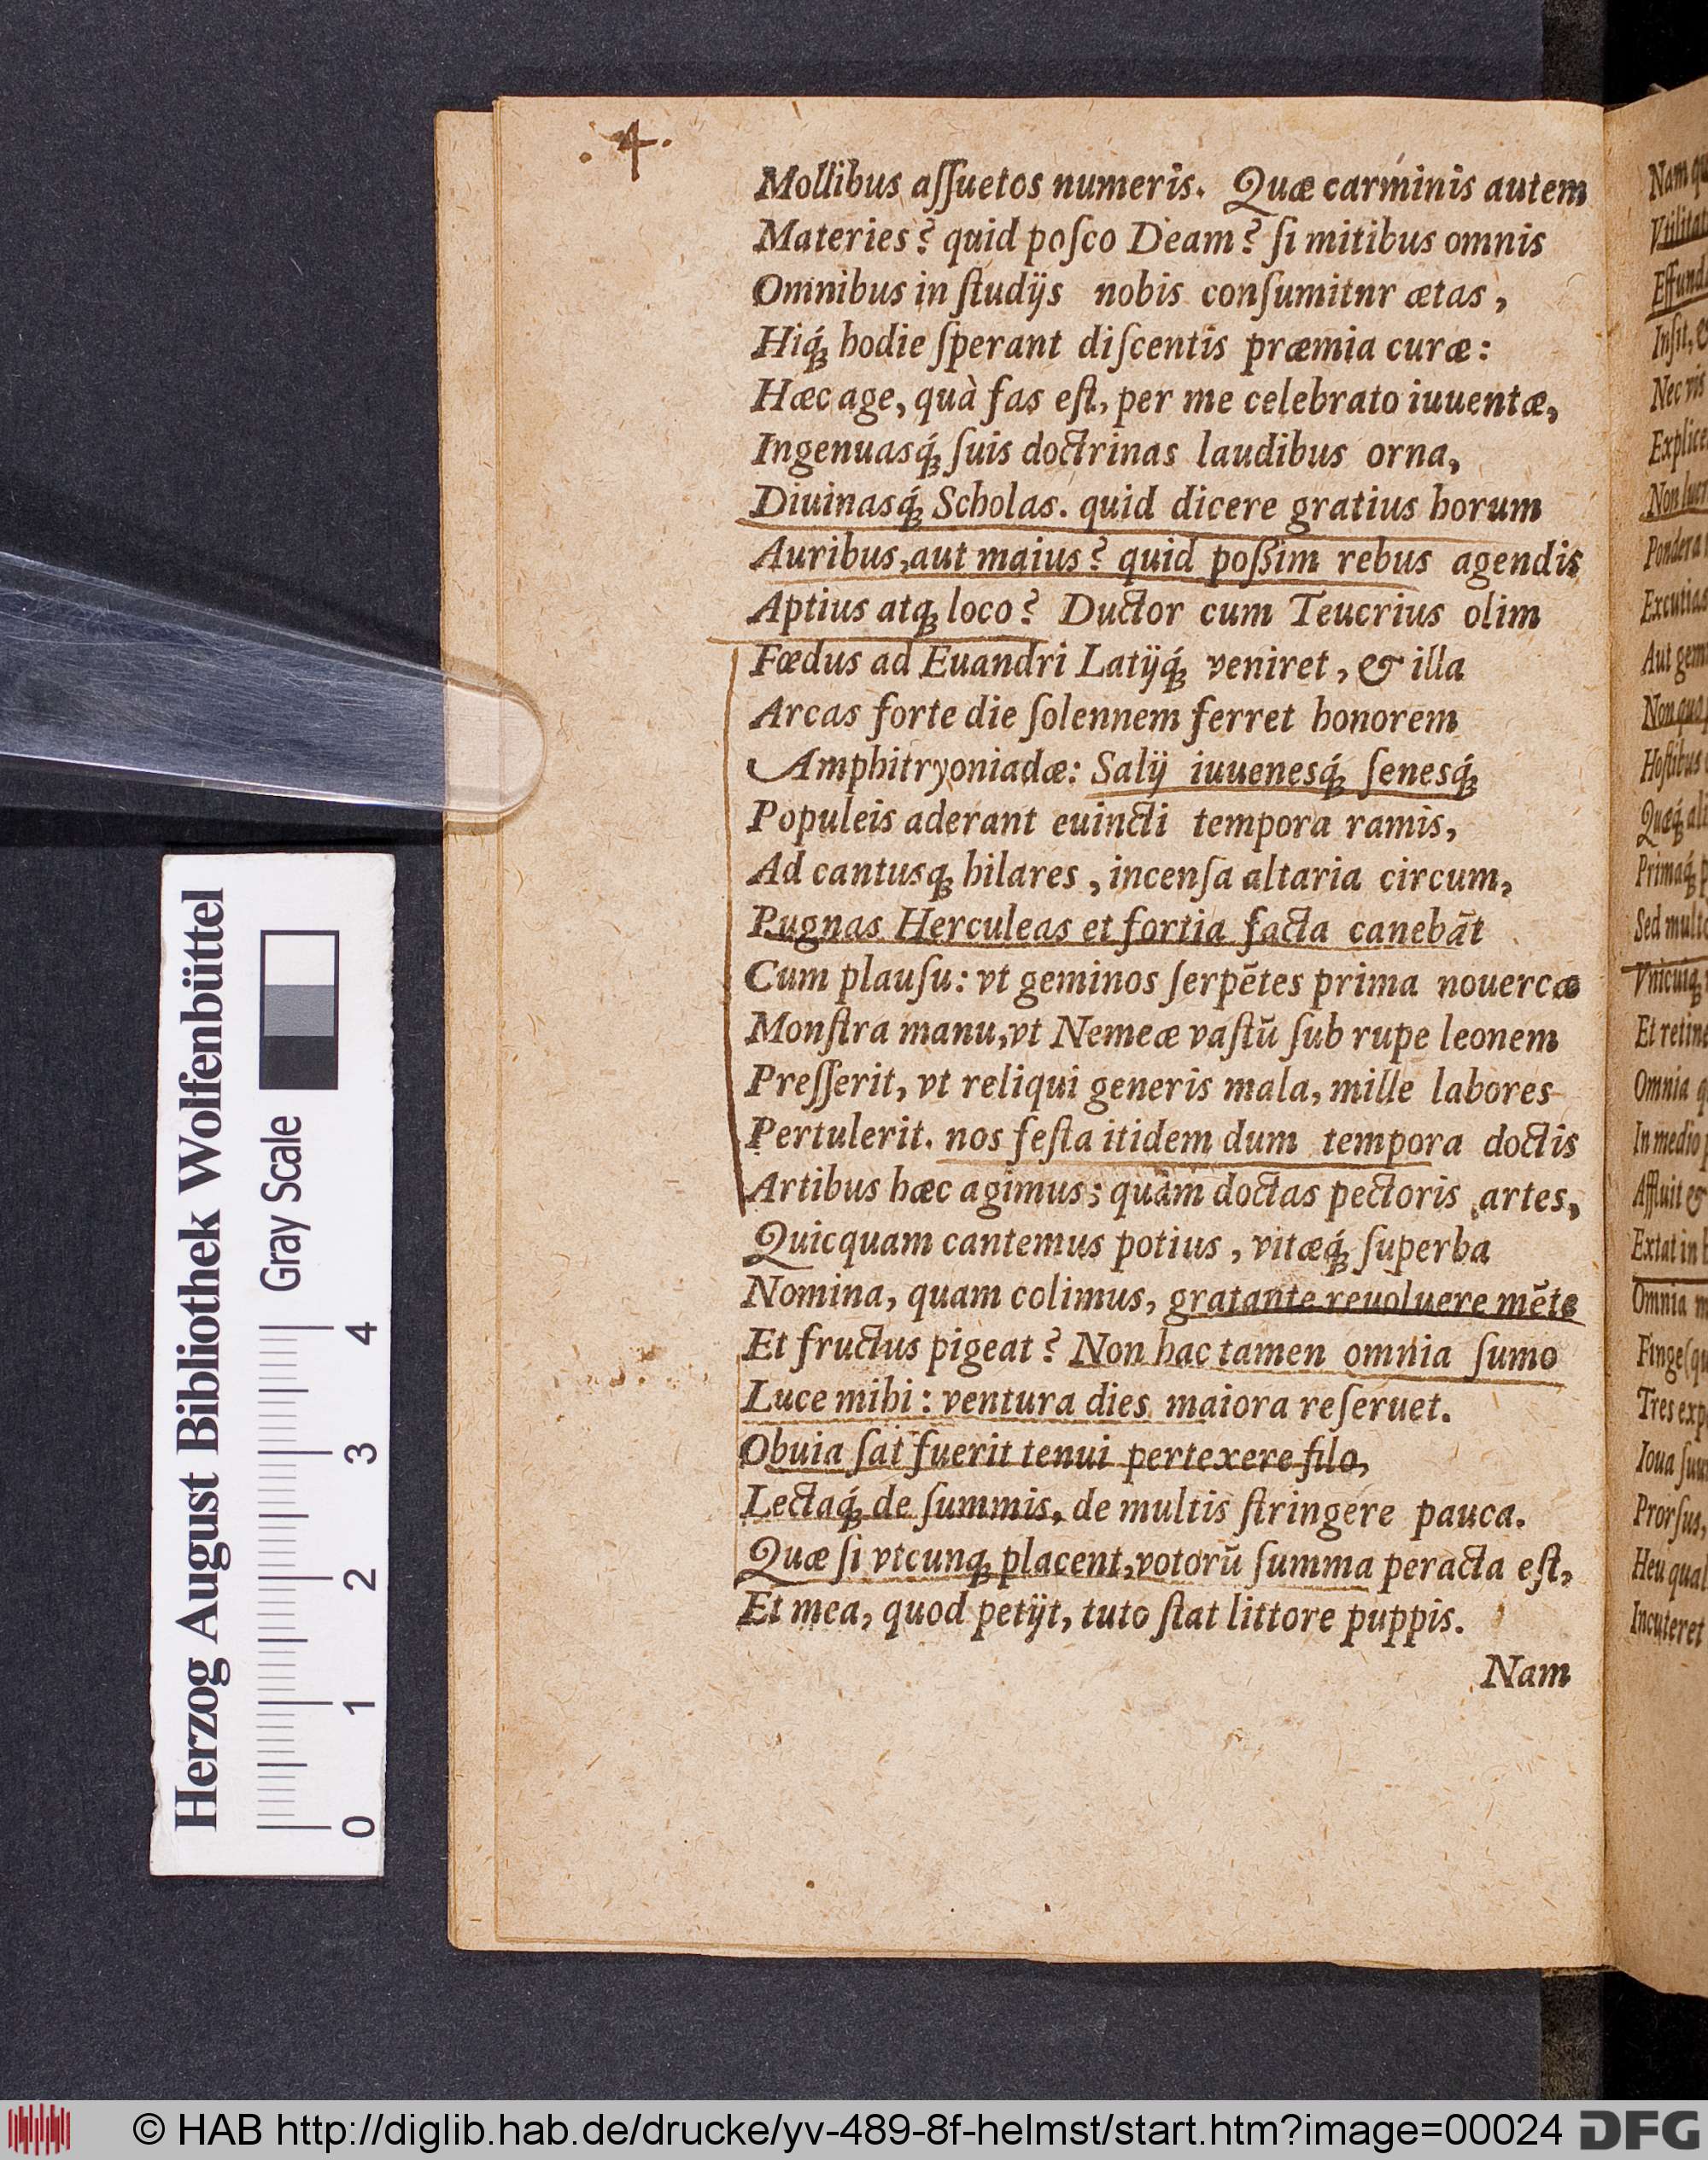 . 4.
Mollibus aſſuetos numeris. Quæ carminis autem
Materies? quid poſco Deam? ſi mitibus omnis
Omnibus in ſtudijs nobis conſumitnr ætas,
Hiq́; hodie ſperant diſcentis præmia curæ:
Hæc age, quà fas eſt, per me celebrato iuuentæ,
Ingenuasq́; ſuis doctrinas laudibus orna,
Diuinasq́; Scholas. quid dicere gratius horum
Auribus, aut maius? quid poßim rebus agendis
Aptius atq; loco? Ductor cum Teucrius olim
Fœdus ad Euandri Latijq́; veniret, & illa
Arcas forte die ſolennem ferret honorem
Amphitryoniadæ: Salij iuuenesq́; ſenesq́;
Populeis aderant euincti tempora ramis,
Ad cantusq; hilares, incenſa altaria circum,
Pugnas Herculeas et fortia facta canebāt
Cum plauſu: vt geminos ſerpētes prima nouercæ
Monſtra manu, vt Nemeæ vaſtū ſub rupe leonem
Preſſerit, vt reliqui generis mala, mille labores
Pertulerit. nos feſta itidem dum tempora doctis
Artibus hæc agimus; quàm doctas pectoris artes,
Quicquam cantemus potius, vitæq́; ſuperba
Nomina, quam colimus, gratante reuoluere mēte
Et fructus pigeat? Non hac tamen omnia ſumo
Luce mihi: ventura dies maiora reſeruet.
Obuia ſat fuerit tenui pertexere filo,
Lectaq́; de ſummis, de multis ſtringere pauca.
Quæ ſi vtcunq; placent, votorū ſumma peracta eſt,
Et mea, quod petijt, tuto ſtat littore puppis.
Nam
Nam
Effund
Nec vis
Explice
Excutias
Sed multo
Et retine
Omnia
In medio
Affluit &
Extat in
Omnia
Tres exp
Ioua
Prorſus,
Heu qual
Incuteret
Herzog August Bibliothek Wolfenbüttel
Gray Scale
0 1 2 3 4
© HAB http://diglib.hab.de/drucke/yv-489-8f-helmst/start.htm?image=00024 DFG